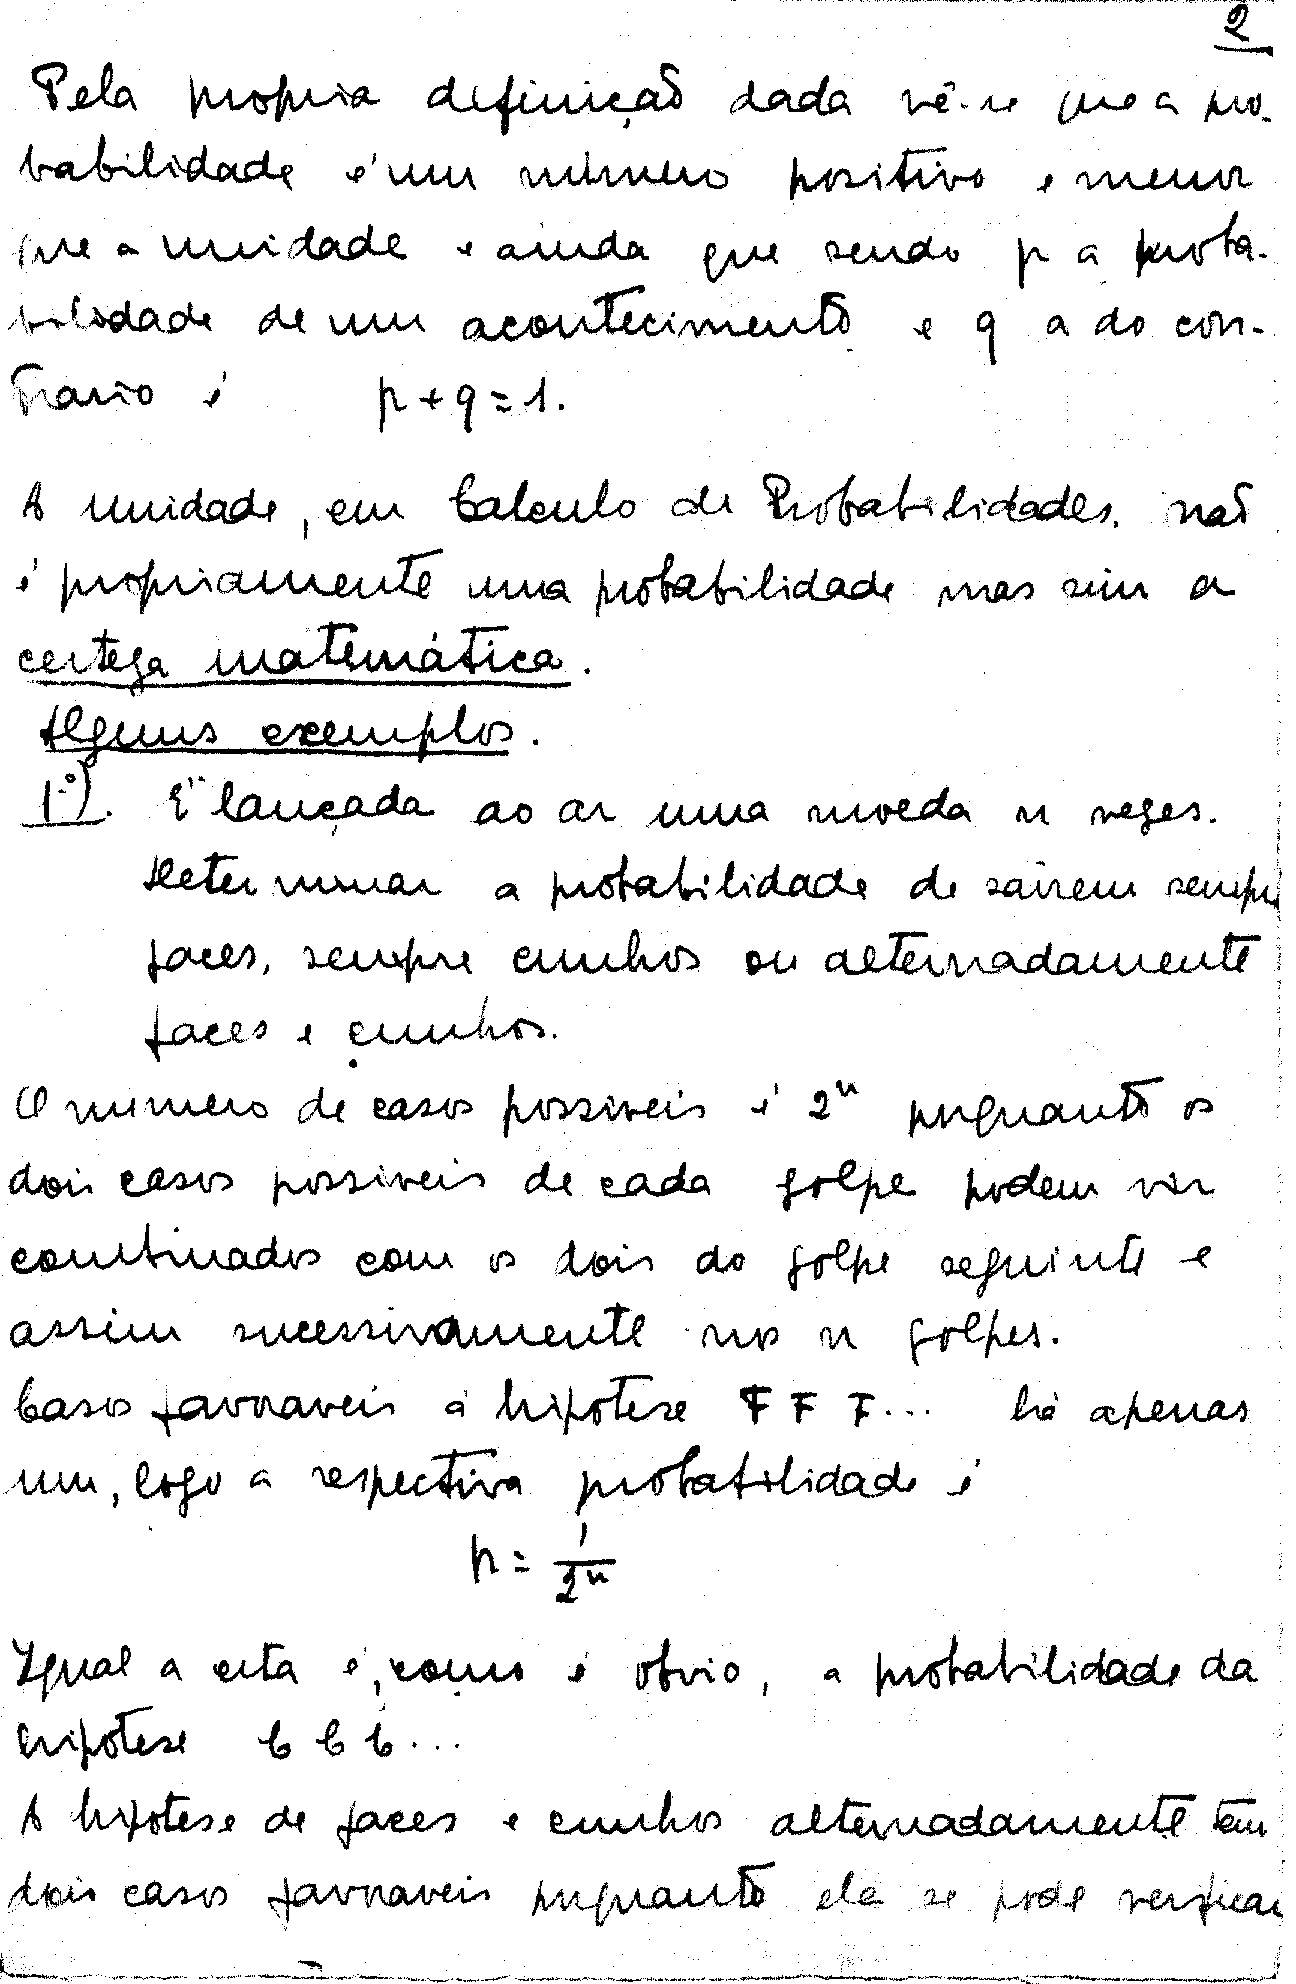 2
Pela propria definição dada vê-se que a pro-
babilidade é um número positivo e menor
que a unidade e ainda que sendo p a proba-
bilidade de um acontecimento e q a do con-
trario é p + q = 1.
A unidade, em Calculo de Probabilidades, não
é propriamente uma probabilidade mas sim a
certeza matemática.
Alguns exemplos.
1.º). É lançada ao ar uma moeda n vezes.
Determinar a probabilidade de sairem sempre
faces, sempre cunhos ou alternadamente
faces e cunhos.
O numero de casos possiveis é 2ⁿ porquanto os
dois casos possiveis de cada golpe podem vir
combinados com os dois do golpe seguinte e
assim sucessivamente nos n golpes.
Casos favoraveis á hipotese F F F... há apenas
um, logo a respectiva probabilidade é
p = 1/2ⁿ
Igual a esta é, como é obvio, a probabilidade da
hipotese C C C...
A hipotese de faces e cunhos alternadamente tem
dois casos favoraveis porquanto ela se pode verificar